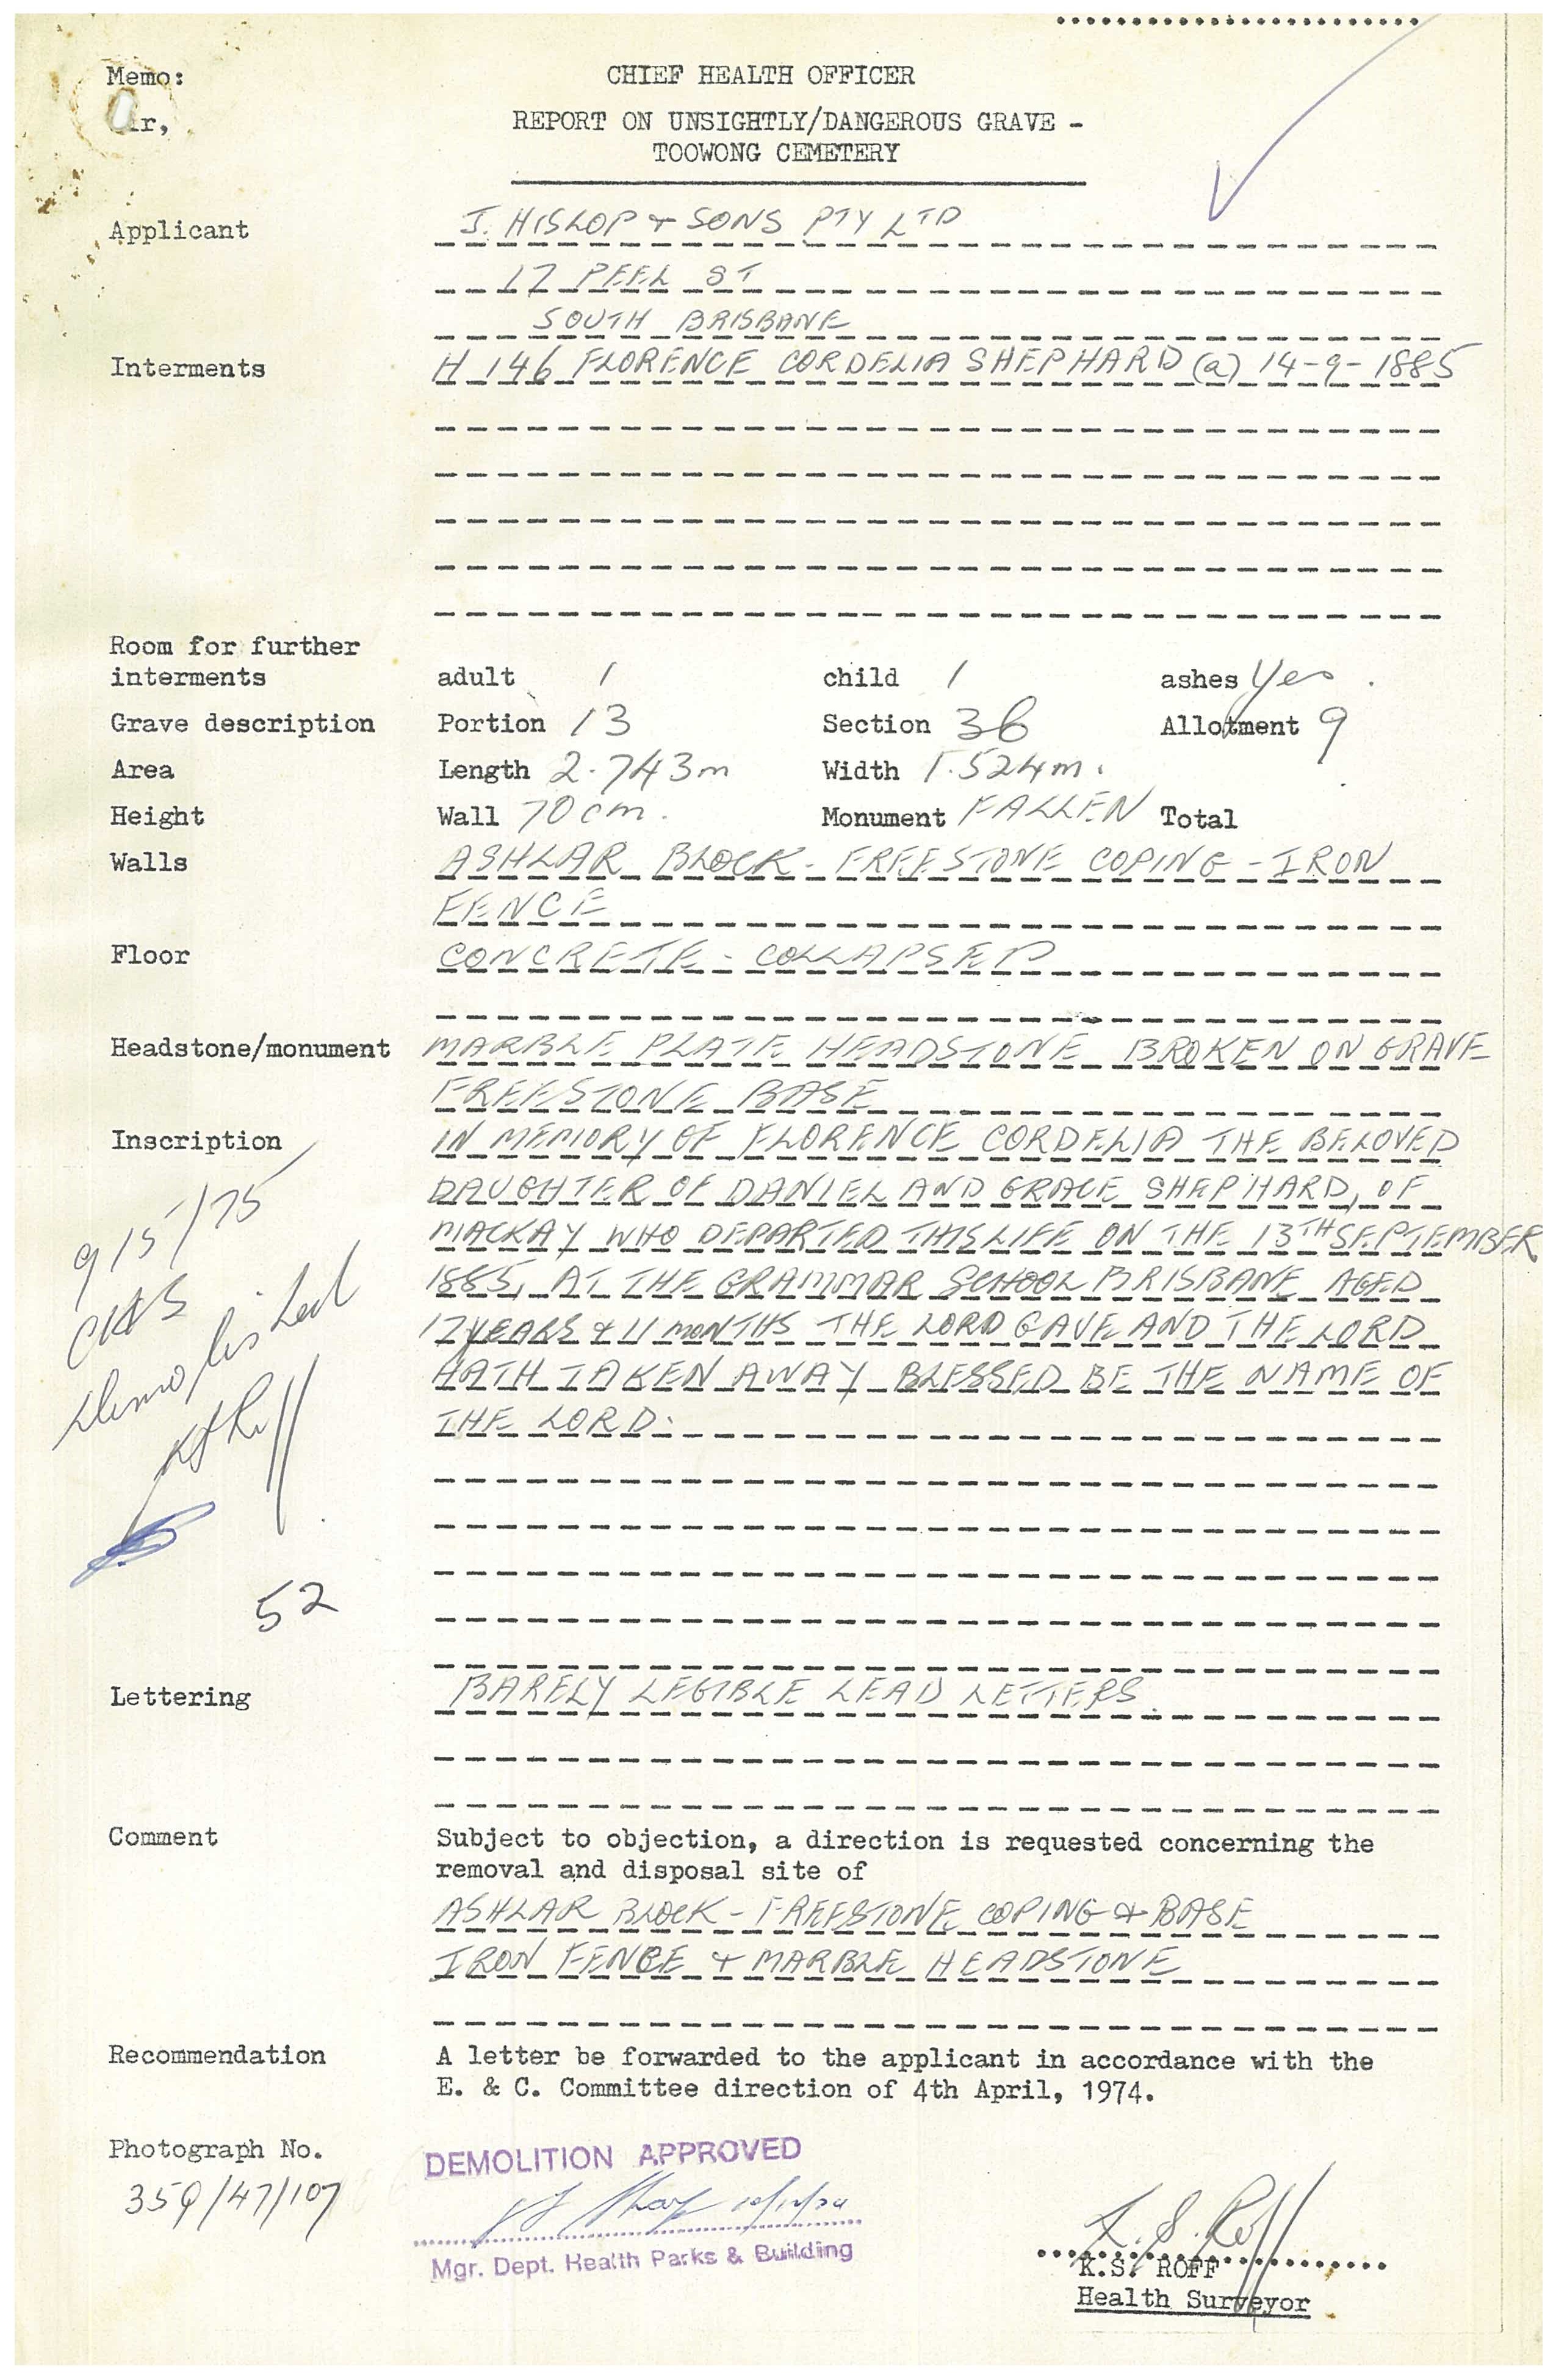 Memo:
CHIEF HEALTH OFFICER
REPORT ON UNSIGHTLY/DANGEROUS GRAVE -
TOOWONG CEMETERY
Applicant J. HISLOP & SONS PTY LTD
17 PEEL ST
SOUTH BRISBANE
Interments H 146 FLORENCE CORDELIA SHEPHARD (a) 14-9-1885
Room for further
interments adult 1 child 1 ashes Yes.
Grave description Portion 13 Section 36 Allotment 9
Area Length 2.743m Width 1.524m.
Height Wall 70cm. Monument FALLEN Total
Walls ASHLAR BLOCK - FREESTONE COPING - IRON
FENCE
Floor CONCRETE - COLLAPSED
Headstone/monument MARBLE PLATE HEADSTONE BROKEN ON GRAVE
FREESTONE BASE
Inscription IN MEMORY OF FLORENCE CORDELIA THE BELOVED
DAUGHTER OF DANIEL AND GRACE SHEPHARD, OF
MACKAY WHO DEPARTED THIS LIFE ON THE 13TH SEPTEMBER
1885, AT THE GRAMMAR SCHOOL BRISBANE AGED
17 YEARS & 11 MONTHS THE LORD GAVE AND THE LORD
HATH TAKEN AWAY BLESSED BE THE NAME OF
THE LORD.
9/5/75
demolished
KS Roff
52
Lettering BARELY LEGIBLE LEAD LETTERS
Comment Subject to objection, a direction is requested concerning the
removal and disposal site of
ASHLAR BLOCK - FREESTONE COPING & BASE
IRON FENCE & MARBLE HEADSTONE
Recommendation A letter be forwarded to the applicant in accordance with the
E. & C. Committee direction of 4th April, 1974.
Photograph No.
359/47/107
DEMOLITION APPROVED
Mgr. Dept. Health Parks & Building
K.S. Roff
K.S. ROFF
Health Surveyor